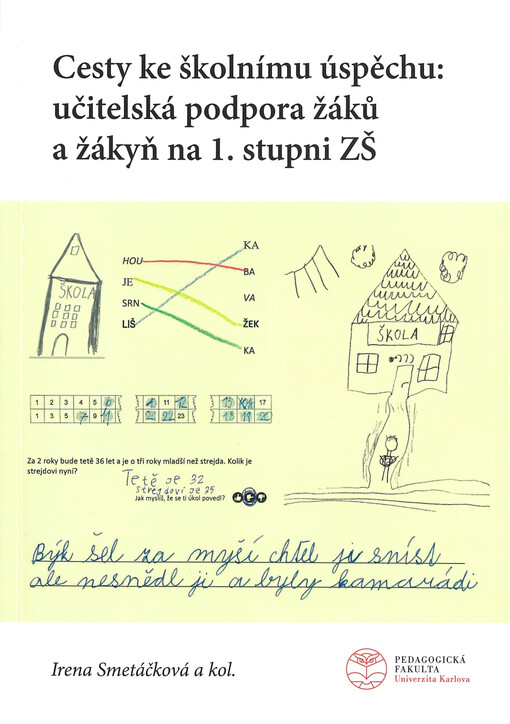 Cesty ke školnímu úspěchu:
učitelská podpora žáků
a žákyň na 1. stupni ZŠ
ŠKOLA
HOU
JE
SRN
LIŠ
KA
BA
VA
ŽEK
KA
ŠKOLA
1 2 3 4 5 6
1 3 5 7 9 11
10 11 12
21 22 23
15 16 17
18 19 20
Za 2 roky bude tetě 36 let a je o tři roky mladší než strejda. Kolik je
strejdovi nyní?
Tetě je 32
strejdovi je 35
Jak myslíš, že se ti úkol povedl?
Býk šel za myší chtel ji sníst
ale nesnědl ji a byly kamarádi
Irena Smetáčková a kol.
PEDAGOGICKÁ
FAKULTA
Univerzita Karlova